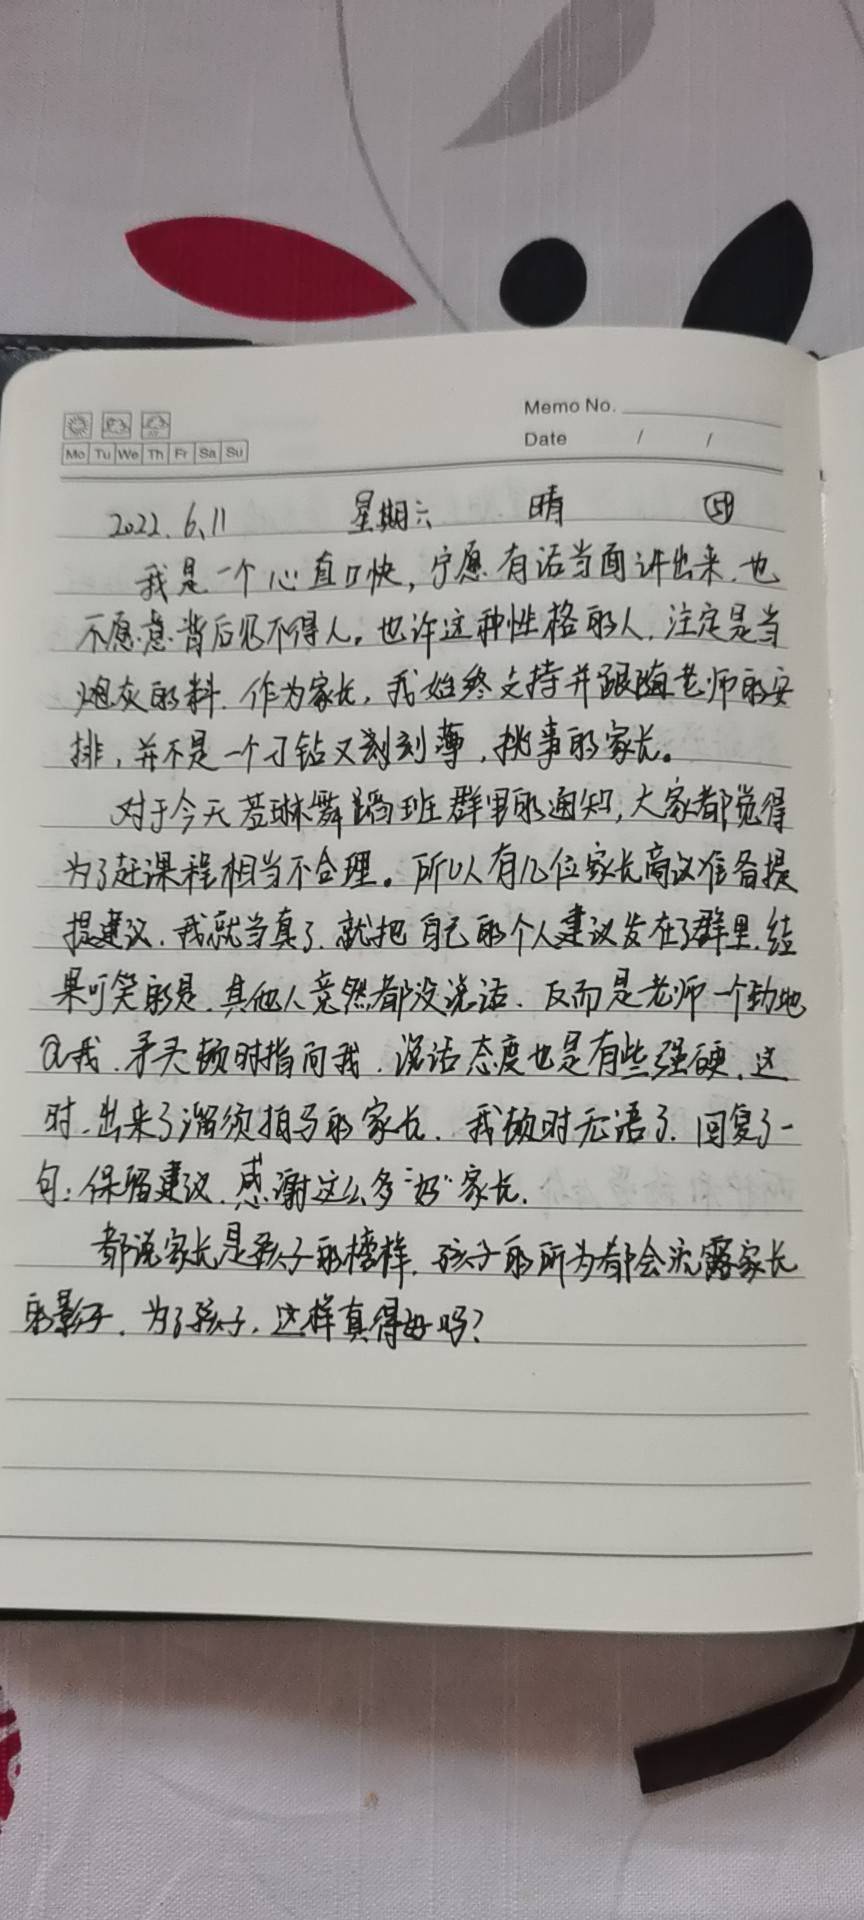 Memo No.
Date / /
Mo Tu We Th Fr Sa Su
2022.6.11 星期六 晴
我是一个心直口快，宁愿有话当面讲出来，也
不愿意背后见不得人。也许这种性格的人，注定是当
炮灰的料. 作为家长，我始终支持并跟随老师的安
排，并不是一个刁钻又刻薄，挑事的家长。
对于今天若琳舞蹈班群里的通知，大家都觉得
为了赶课程相当不合理。所以有几位家长商议准备提
提建议，我就当真了，就把自己的个人建议发在了群里，结
果可笑的是，其他人竟然都没说话，反而是老师一个劲地
@我，矛头顿时指向我，说话态度也是有些强硬，这
时，出来了溜须拍马的家长，我顿时无语了，回复了一
句：保留建议，感谢这么多“好”家长.
都说家长是孩子的榜样，孩子的所为都会流露家长
的影子，为了孩子，这样真得好吗？